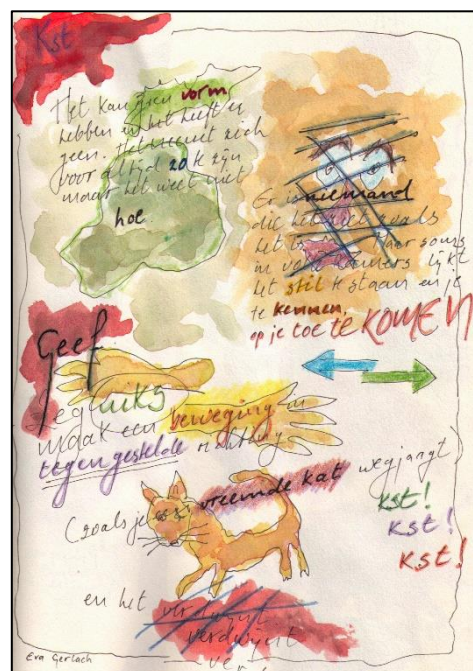 Kst
Het kan geen vorm
hebben en het heeft er
geen. Het meent zich
voor altijd zo te zijn
maar het weet niet
hoe.
Er is niemand
die het ziet zoals
het is. Maar soms
in verre kamers lijkt
het stil te staan en je
te kennen,
op je toe te KOMEN
Geef
Zeg niks
maak een beweging in
tegengestelde richting
(zoals je een vreemde kat wegjaagt)
kst!
kst!
kst!
en het verdwijnt
verdwijnt
Eva Gerlach